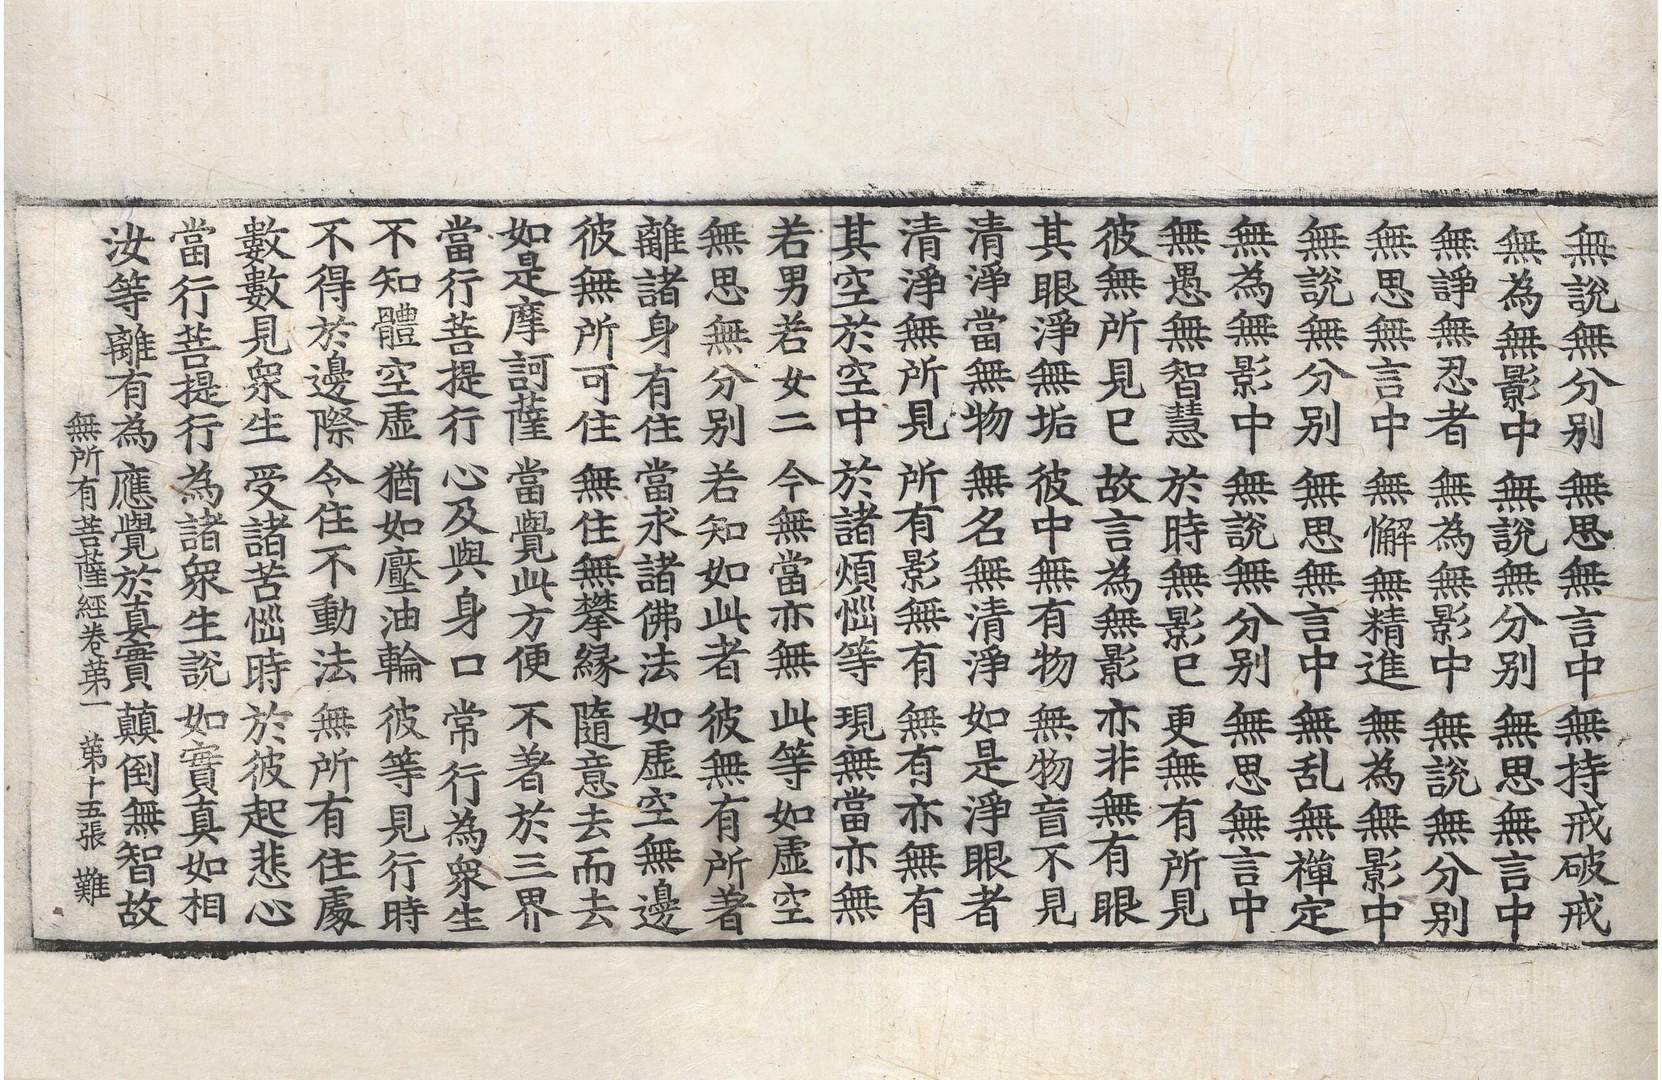 無說無分別 無思無言中 無持戒破戒
無為無影中 無說無分別 無思無言中
無諍無忍者 無為無影中 無說無分別
無思無言中 無懈無精進 無為無影中
無說無分別 無思無言中 無乱無禪定
無為無影中 無說無分別 無思無言中
無愚無智慧 於時無影已 更無有所見
彼無所見已 故言為無影 亦非無有眼
其眼淨無垢 彼中無有物 無物盲不見
清淨當無物 無名無清淨 如是淨眼者
清淨無所見 所有影無有 無有亦無有
其空於空中 於諸煩惱等 現無當亦無
若男若女二 今無當亦無 此等如虛空
無思無分別 若知如此者 彼無有所著
離諸身有住 當求諸佛法 如虛空無邊
彼無所可住 無住無攀緣 隨意去而去
如是摩訶薩 當覺此方便 不著於三界
當行菩提行 心及與身口 常行為衆生
不知體空虛 猶如壓油輪 彼等見行時
不得於邊際 令住不動法 無所有住處
數數見衆生 受諸苦惱時 於彼起悲心
當行菩提行 為諸衆生說 如實真如相
汝等離有為 應覺於真實 顛倒無智故
無所有菩薩經卷第一 第十五張 難